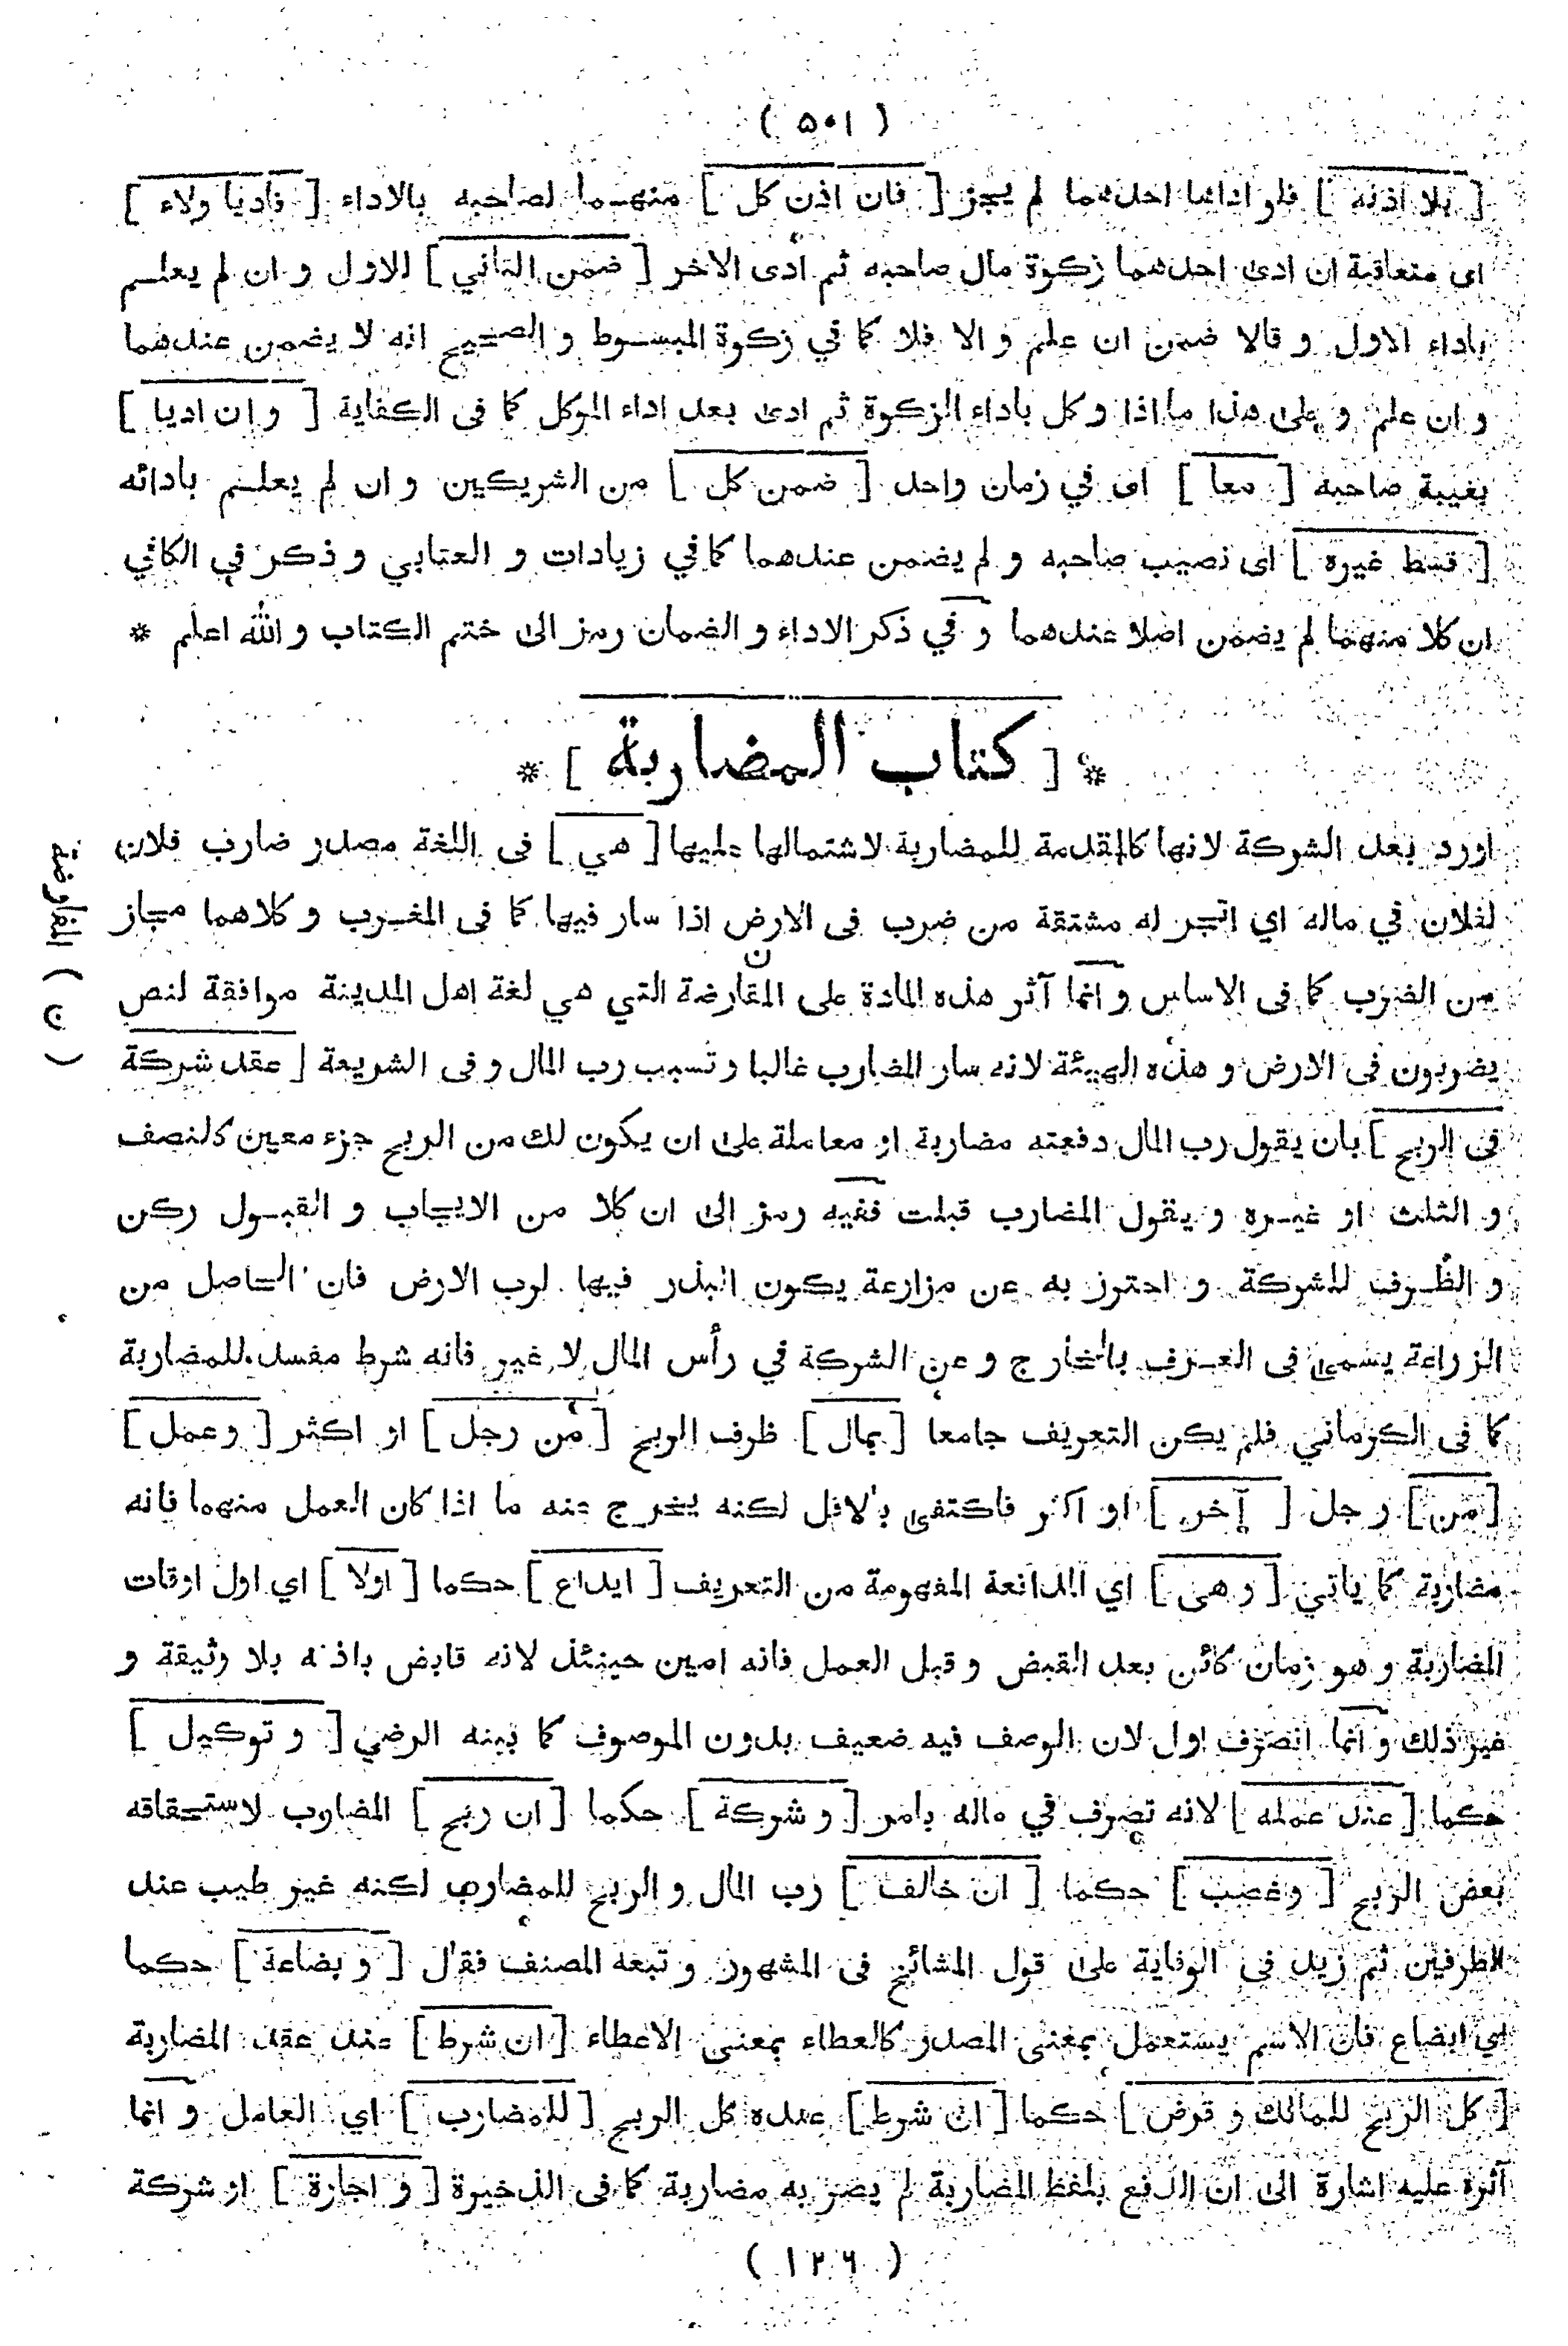 ( ۵۰۱ )
[ بلا اذنه ] فلو اداها احدهما لم يجز [ فان اذن كل ] منهما لصاحبه بالاداء [ فاديا ولاء ]
اى متعاقبة ان ادى احدهما زكوة مال صاحبه ثم ادى الاخر [ ضمن الثاني ] للاول و ان لم يعلم
باداء الاول و قالا ضمن ان علم و الا فلا كما في زكوة المبسوط و الصحيح انه لا يضمن عندهما
و ان علم و على هذا ما اذا وكل باداء الزكوة ثم ادى بعد اداء الموكل كما فى الكفاية [ و ان اديا ]
بغيبة صاحبه [ معا ] اى في زمان واحد [ ضمن كل ] من الشريكين و ان لم يعلم بادائه
[ قسط غيره ] اى نصيب صاحبه و لم يضمن عندهما كما في زيادات و العتابي و ذكر في الكافي
ان كلا منهما لم يضمن اصلا عندهما و في ذكر الاداء و الضمان رمز الى ختم الكتاب و الله اعلم *
* [ كتاب المضاربة ] *
اورد بعد الشركة لانها كالمقدمة للمضاربة لاشتمالها عليها [ هي ] فى اللغة مصدر ضارب فلان
لفلان في ماله اي اتجر له مشتقة من ضرب فى الارض اذا سار فيها كما فى المغرب و كلاهما مجاز
من الضرب كما فى الاساس و انما آثر هذه المادة على المقارضة التي هي لغة اهل المدينة موافقة لنص
ن
يضربون فى الارض و هذه الهيئة لانه سار المضارب غالبا و تسبب رب المال و فى الشريعة [ عقد شركة
فى الربح ] بان يقول رب المال دفعته مضاربة او معاملة على ان يكون لك من الربح جزء معين كالنصف
و الثلث او غيره و يقول المضارب قبلت ففيه رمز الى ان كلا من الايجاب و القبول ركن
و الظرف للشركة و احترز به عن مزارعة يكون البذر فيها لرب الارض فان الحاصل من
الزراعة يسمى فى العرف بالخارج و عن الشركة في رأس المال لا غير فانه شرط مفسد للمضاربة
كما فى الكرماني فلم يكن التعريف جامعا [ بمال ] ظرف الربح [ من رجل ] او اكثر [ وعمل ]
[ من ] رجل [ آخر ] او اكثر فاكتفى بالاقل لكنه يخرج عنه ما اذا كان العمل منهما فانه
مضاربة كما ياتي [ و هى ] اي الدافعة المفهومة من التعريف [ ايداع ] حكما [ اولا ] اي اول اوقات
المضاربة و هو زمان كائن بعد القبض و قبل العمل فانه امين حينئذ لانه قابض باذنه بلا وثيقة و
غير ذلك و انما انصرف اول لان الوصف فيه ضعيف بدون الموصوف كما بينه الرضي [ و توكيل ]
حكما [ عند عمله ] لانه تصرف في ماله بامر [ و شركة ] حكما [ ان ربح ] المضارب لاستحقاقه
بعض الربح [ وغصب ] حكما [ ان خالف ] رب المال و الربح للمضارب لكنه غير طيب عند
الطرفين ثم زيد فى الوقاية على قول المشائخ فى المشهور و تبعه المصنف فقال [ و بضاعة ] حكما
اي ابضاع فان الاسم يستعمل بمعنى المصدر كالعطاء بمعنى الاعطاء [ ان شرط ] عند عقد المضاربة
[ كل الربح للمالك و قرض ] حكما [ ان شرط ] عنده كل الربح [ للمضارب ] اي العامل و انما
آثره عليه اشارة الى ان الدفع بلفظ المضاربة لم يصر به مضاربة كما فى الذخيرة [ و اجارة ] او شركة
( ۱۲۶ )
( ن ) المفاوضة